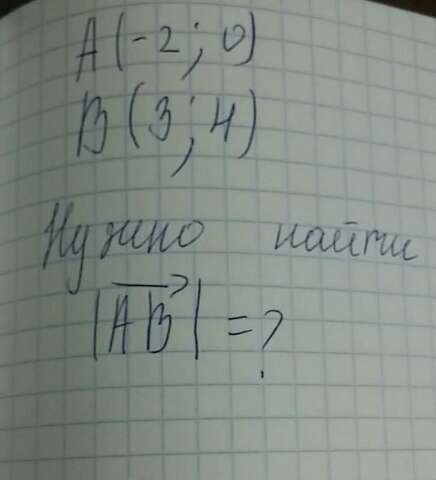 A(-2; 0)
B(3; 4)
Нужно найти
|AB| = ?